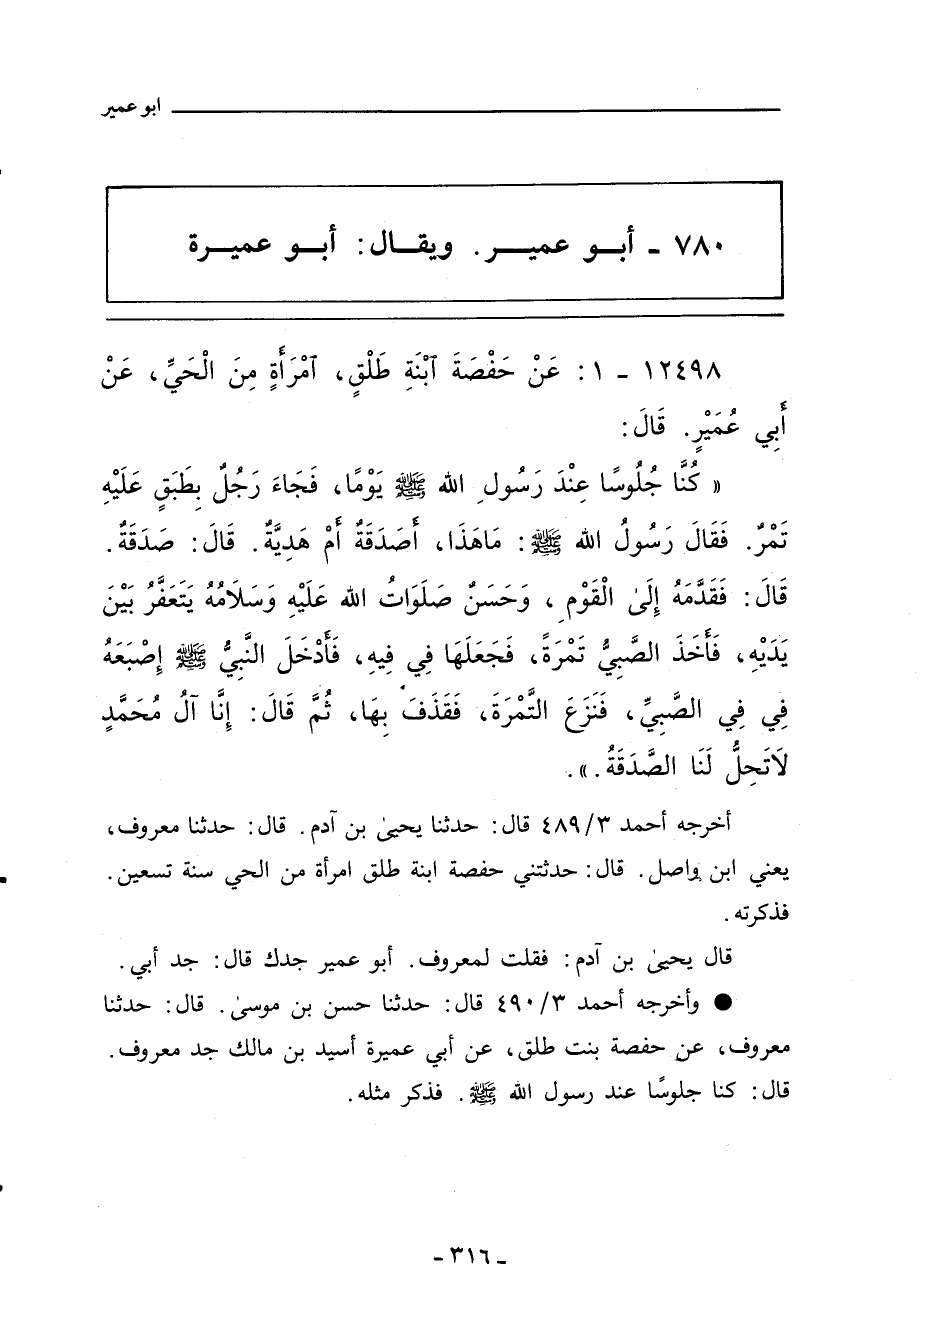 ابو عمير
٧٨٠ - أبـو عميـر. ويقـال: أبـو عميرة
١٢٤٩٨ - ١: عَنْ حَفْصَةَ ٱبْنَةِ طَلْقٍ، ٱمْرَأَةٍ مِنَ الْحَيِّ، عَنْ
أَبِي عُمَيْرٍ. قَالَ:
« كُنَّا جُلُوسًا عِنْدَ رَسُولِ الله ﷺ يَوْمًا، فَجَاءَ رَجُلٌ بِطَبَقٍ عَلَيْهِ
تَمْرٌ. فَقَالَ رَسُولُ الله ﷺ: مَاهَذَا، أَصَدَقَةٌ أَمْ هَدِيَّةٌ. قَالَ: صَدَقَةٌ.
قَالَ: فَقَدَّمَهُ إِلَىٰ الْقَوْمِ، وَحَسَنٌ صَلَوَاتُ الله عَلَيْهِ وَسَلَامُهُ يَتَعَفَّرُ بَيْنَ
يَدَيْهِ، فَأَخَذَ الصَّبِيُّ تَمْرَةً، فَجَعَلَهَا فِي فِيهِ، فَأَدْخَلَ النَّبِيُّ ﷺ إِصْبَعَهُ
فِي فِي الصَّبِيِّ، فَنَزَعَ التَّمْرَةَ، فَقَذَفَ بِهَا، ثُمَّ قَالَ: إِنَّا آلُ مُحَمَّدٍ
لَاتَحِلُّ لَنَا الصَّدَقَةُ.».
أخرجه أحمد ٤٨٩/٣ قال: حدثنا يحيىٰ بن آدم. قال: حدثنا معروف،
يعني ابن واصل. قال: حدثتني حفصة ابنة طلق امرأة من الحي سنة تسعين.
فذكرته.
قال يحيىٰ بن آدم: فقلت لمعروف. أبو عمير جدك قال: جد أبي.
● وأخرجه أحمد ٤٩٠/٣ قال: حدثنا حسن بن موسىٰ. قال: حدثنا
معروف، عن حفصة بنت طلق، عن أبي عميرة أسيد بن مالك جد معروف.
قال: كنا جلوسًا عند رسول الله ﷺ. فذكر مثله.
- ٣١٦ -